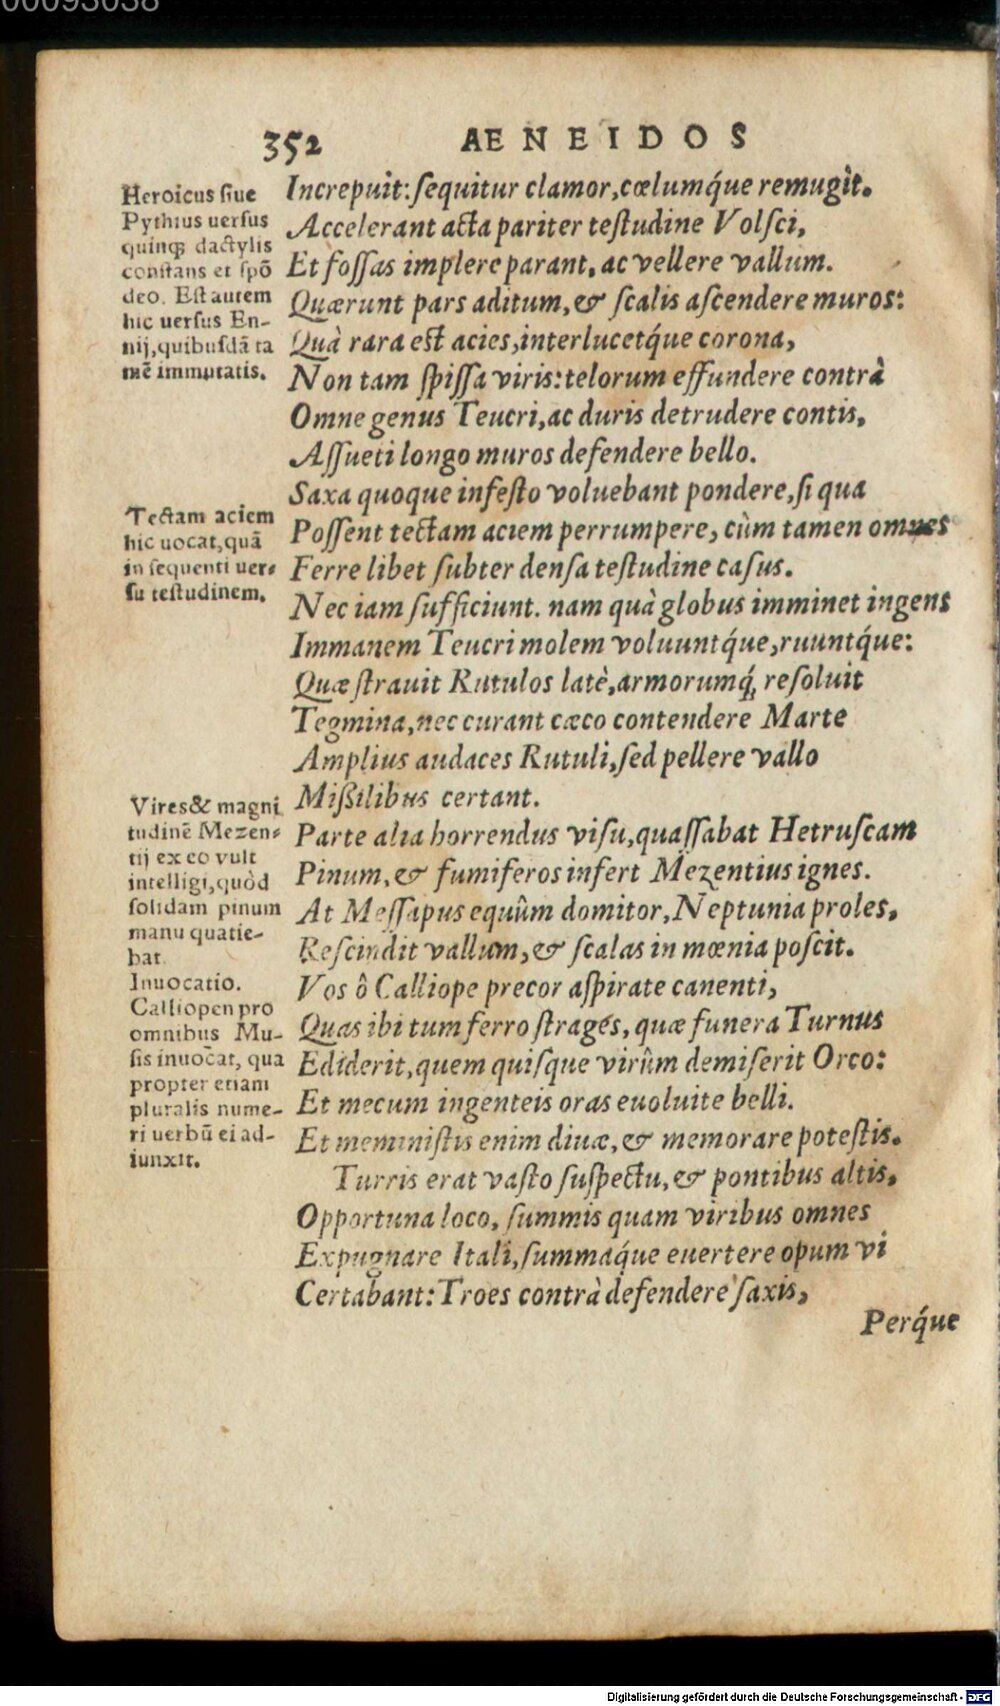 00093038
352 AENEIDOS
Heroicus ſiue
Pythius uerſus
quinq; dactylis
conſtans et ſpõ
deo. Eſt autem
hic uerſus En-
nij, quibuſdã ta
mẽ immutatis.
Increpuit: ſequitur clamor, cœlumq́ue remugìt.
Accelerant acta pariter teſtudine Volſci,
Et foſſas implere parant, ac vellere vallum.
Quærunt pars aditum, & ſcalis aſcendere muros:
Quà rara eſt acies, interlucetq́ue corona,
Non tam ſpiſſa viris: telorum effundere contrà
Omne genus Teucri, ac duris detrudere contis,
Aſſueti longo muros defendere bello.
Saxa quoque infeſto voluebant pondere, ſi qua
Tectam aciem
hic uocat, quã
in ſequenti uer-
ſu teſtudinem.
Poſſent tectam aciem perrumpere, cùm tamen omnes
Ferre libet ſubter denſa teſtudine caſus.
Nec iam ſufficiunt. nam quà globus imminet ingens
Immanem Teucri molem voluuntq́ue, ruuntq́ue:
Quæ ſtrauit Rutulos latè, armorumq́; reſoluit
Tegmina, nec curant cæco contendere Marte
Amplius audaces Rutuli, ſed pellere vallo
Mißilibus certant.
Vires & magni
tudinẽ Mezen-
tij ex eo vult
intelligi, quòd
ſolidam pinum
manu quatie-
bat.
Inuocatio.
Calliopen pro
omnibus Mu-
ſis inuocat, qua
propter etiam
pluralis nume-
ri uerbũ ei ad-
iunxit.
Parte alia horrendus viſu, quaſſabat Hetruſcam
Pinum, & fumiferos infert Mezentius ignes.
At Meſſapus equûm domitor, Neptunia proles,
Reſcindit vallum, & ſcalas in mœnia poſcit.
Vos ô Calliope precor aſpirate canenti,
Quas ibi tum ferro ſtrages, quæ funera Turnus
Ediderit, quem quiſque virûm demiſerit Orco:
Et mecum ingenteis oras euoluite belli.
Et meminiſtis enim diuæ, & memorare poteſtis.
Turris erat vaſto ſuſpectu, & pontibus altis,
Opportuna loco, ſummis quam viribus omnes
Expugnare Itali, ſummaq́ue euertere opum vi
Certabant: Troes contrà defendere ſaxis,
Perq́ue
Digitalisierung gefördert durch die Deutsche Forschungsgemeinschaft - DFG